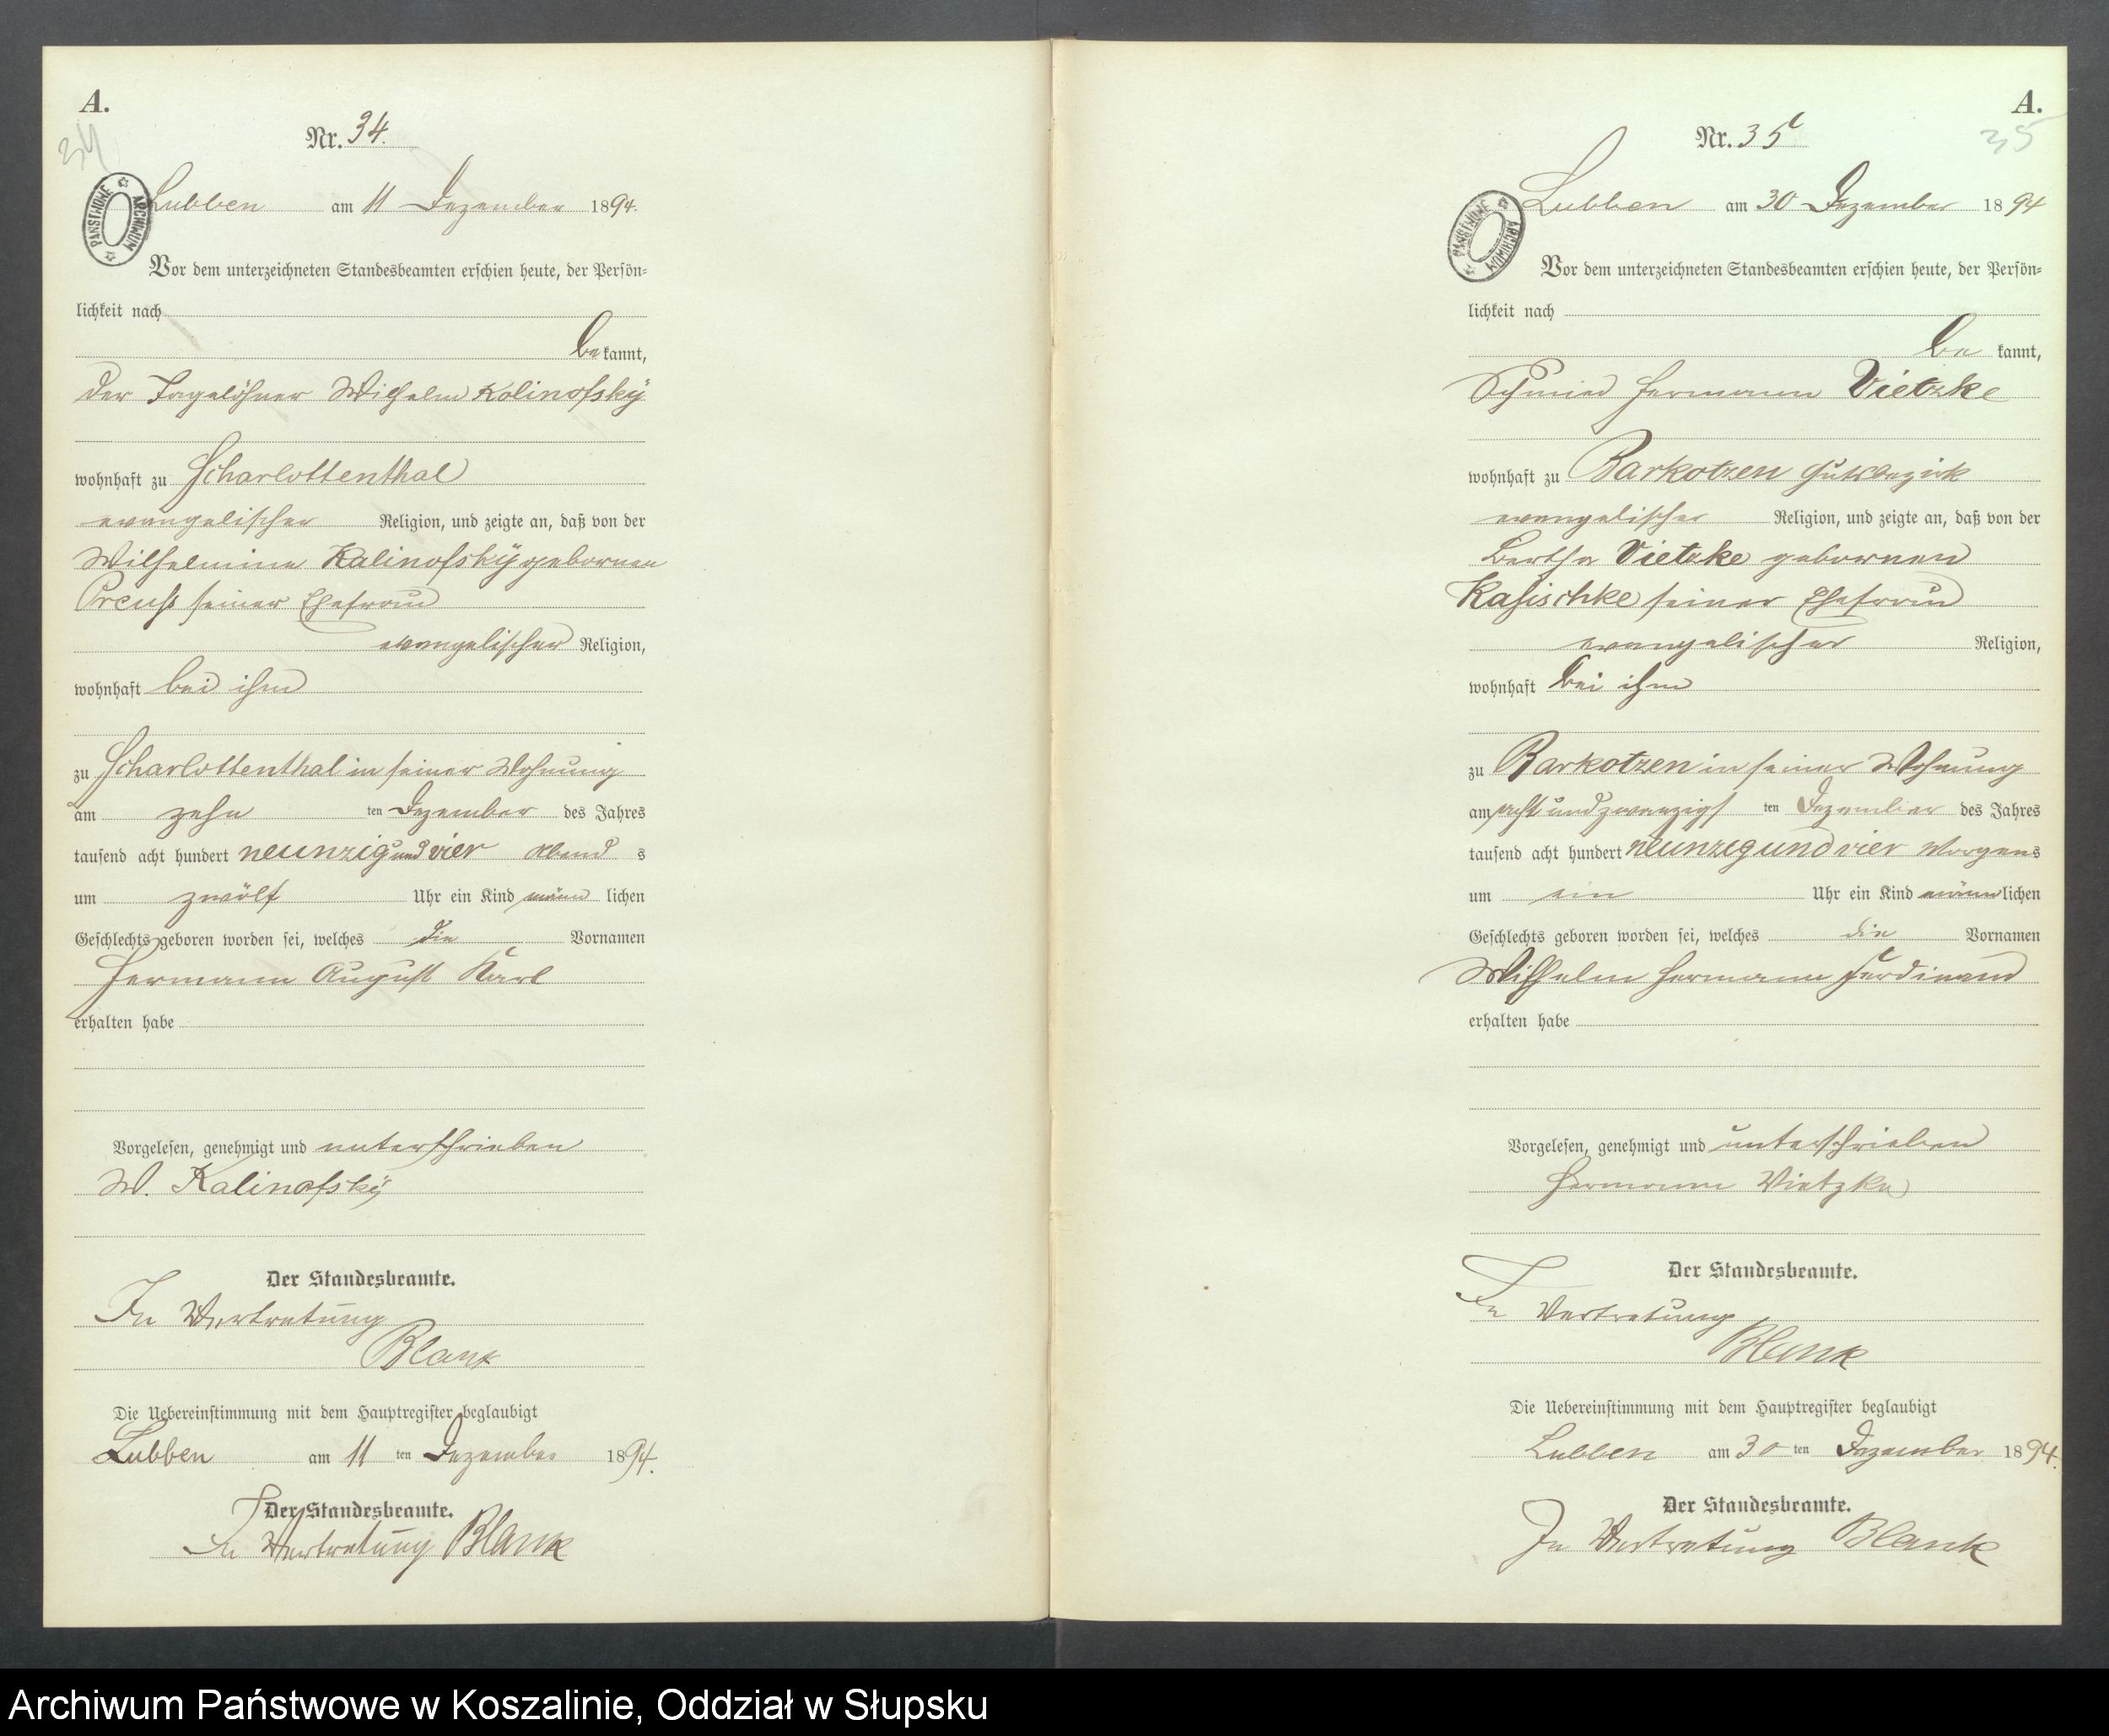 A.
34
Nr. 34.
ARCHIWUM PAŃSTWOWE
Lubben am 11 Dezember 1894.
Vor dem unterzeichneten Standesbeamten erschien heute, der Persön-
lichkeit nach
bekannt,
der Tagelöhner Wilhelm Kalinofsky
wohnhaft zu Scharlottenthal
evangelischer Religion, und zeigte an, daß von der
Wilhelmine Kalinofsky gebornen
Preuß seiner Ehefrau
evangelischer Religion,
wohnhaft bei ihm
zu Scharlottenthal in seiner Wohnung
am zehn ten Dezember des Jahres
tausend acht hundert neunzig und vier Abend s
um zwölf Uhr ein Kind männ lichen
Geschlechts geboren worden sei, welches die Vornamen
Hermann August Karl
erhalten habe
Vorgelesen, genehmigt und unterschrieben
W. Kalinofsky
Der Standesbeamte.
In Vertretung
Blank
Die Uebereinstimmung mit dem Hauptregister beglaubigt
Lubben am 11 ten Dezember 1894.
Der Standesbeamte.
In Vertretung Blank
A.
35
Nr. 35
ARCHIWUM PAŃSTWOWE
Lubben am 30 Dezember 1894
Vor dem unterzeichneten Standesbeamten erschien heute, der Persön-
lichkeit nach
be kannt,
Schmied Hermann Vietzke
wohnhaft zu Barkotzen Gutsbezirk
evangelischer Religion, und zeigte an, daß von der
Bertha Vietzke gebornen
Kasischke seiner Ehefrau
evangelischer Religion,
wohnhaft bei ihm
zu Barkotzen in seiner Wohnung
am acht und zwanzigs ten Dezember des Jahres
tausend acht hundert neunzig und vier Morgens
um ein Uhr ein Kind männlichen
Geschlechts geboren worden sei, welches die Vornamen
Wilhelm Hermann Ferdinand
erhalten habe
Vorgelesen, genehmigt und unterschrieben
Hermann Vietzke
Der Standesbeamte.
In Vertretung
Blank
Die Uebereinstimmung mit dem Hauptregister beglaubigt
Lubben am 30 ten Dezember 1894.
Der Standesbeamte.
In Vertretung Blank
Archiwum Państwowe w Koszalinie, Oddział w Słupsku